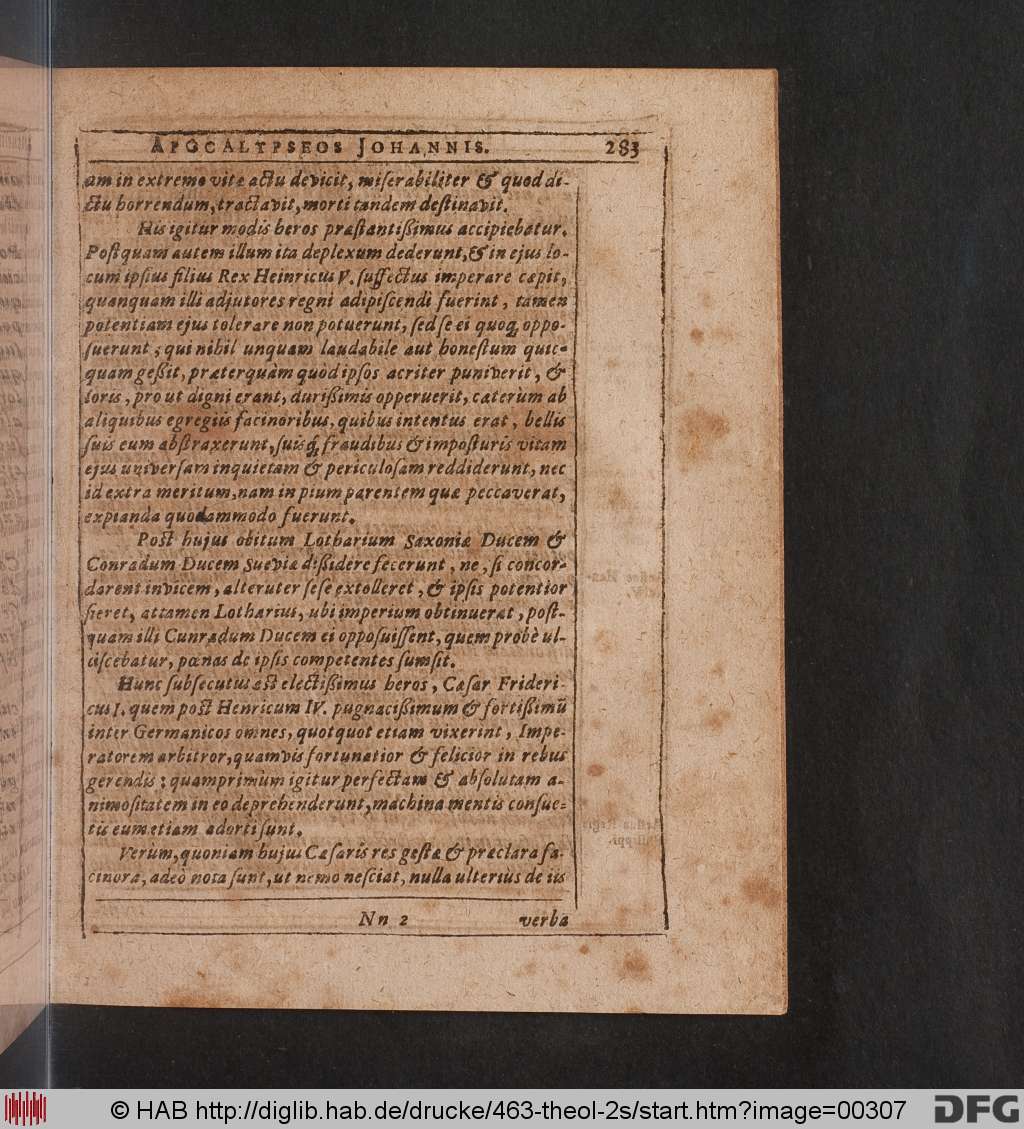 APOCALYPSEOS JOHANNIS. 283
am in extremo vitæ actu devicit, miſerabiliter & quod di-
ctu horrendum, tractavit, morti tandem deſtinavit.
His igitur modis heros præſtantißimus accipiebatur.
Poſtquam autem illum ita deplexum dederunt, & in ejus lo-
cum ipſius filius Rex Heinricus V. ſuffectus imperare cæpit,
quanquam illi adjutores regni adipiſcendi fuerint, tamen
potentiam ejus tolerare non potuerunt, ſed ſe ei quoq; oppo-
ſuerunt; qui nihil unquam laudabile aut honeſtum quic-
quam geßit, præterquàm quòd ipſos acriter puniverit, &
loris, pro ut digni erant, durißimis opperuerit, cæterùm ab
aliquibus egregiis facinoribus, quibus intentus erat, bellis
ſuis eum abſtraxerunt, ſuisq́; fraudibus & impoſturis vitam
ejus univerſam inquietam & periculoſam reddiderunt, nec
id extra meritum, nam in pium parentem quæ peccaverat,
expianda quodammodo fuerunt.
Poſt hujus obitum Lotharium Saxoniæ Ducem &
Conradum Ducem Sueviæ dißidere fecerunt, ne, ſi concor-
darent invicem, alteruter ſeſe extolleret, & ipſis potentior
fieret, attamen Lotharius, ubi imperium obtinuerat, poſt-
quam illi Cunradum Ducem ei oppoſuiſſent, quem probè ul-
ciſcebatur, pœnas de ipſis competentes ſumſit.
Hunc ſubſecutus eſt electißimus heros, Cæſar Frideri-
cus I. quem poſt Henricum IV. pugnacißimum & fortißimũ
inter Germanicos omnes, quotquot etiam vixerint, Impe-
ratorem arbitror, quamvis fortunatior & felicior in rebus
gerendis; quamprimùm igitur perfectam & abſolutam a-
nimoſitatem in eo deprehenderunt, machina mentis conſue-
tis eum etiam adorti ſunt.
Verùm, quoniam hujus Cæſaris res geſtæ & præclara fa-
cinora, adeò nota ſunt, ut nemo neſciat, nulla ulteriùs de iis
Nn 2 verba
© HAB http://diglib.hab.de/drucke/463-theol-2s/start.htm?image=00307 DFG